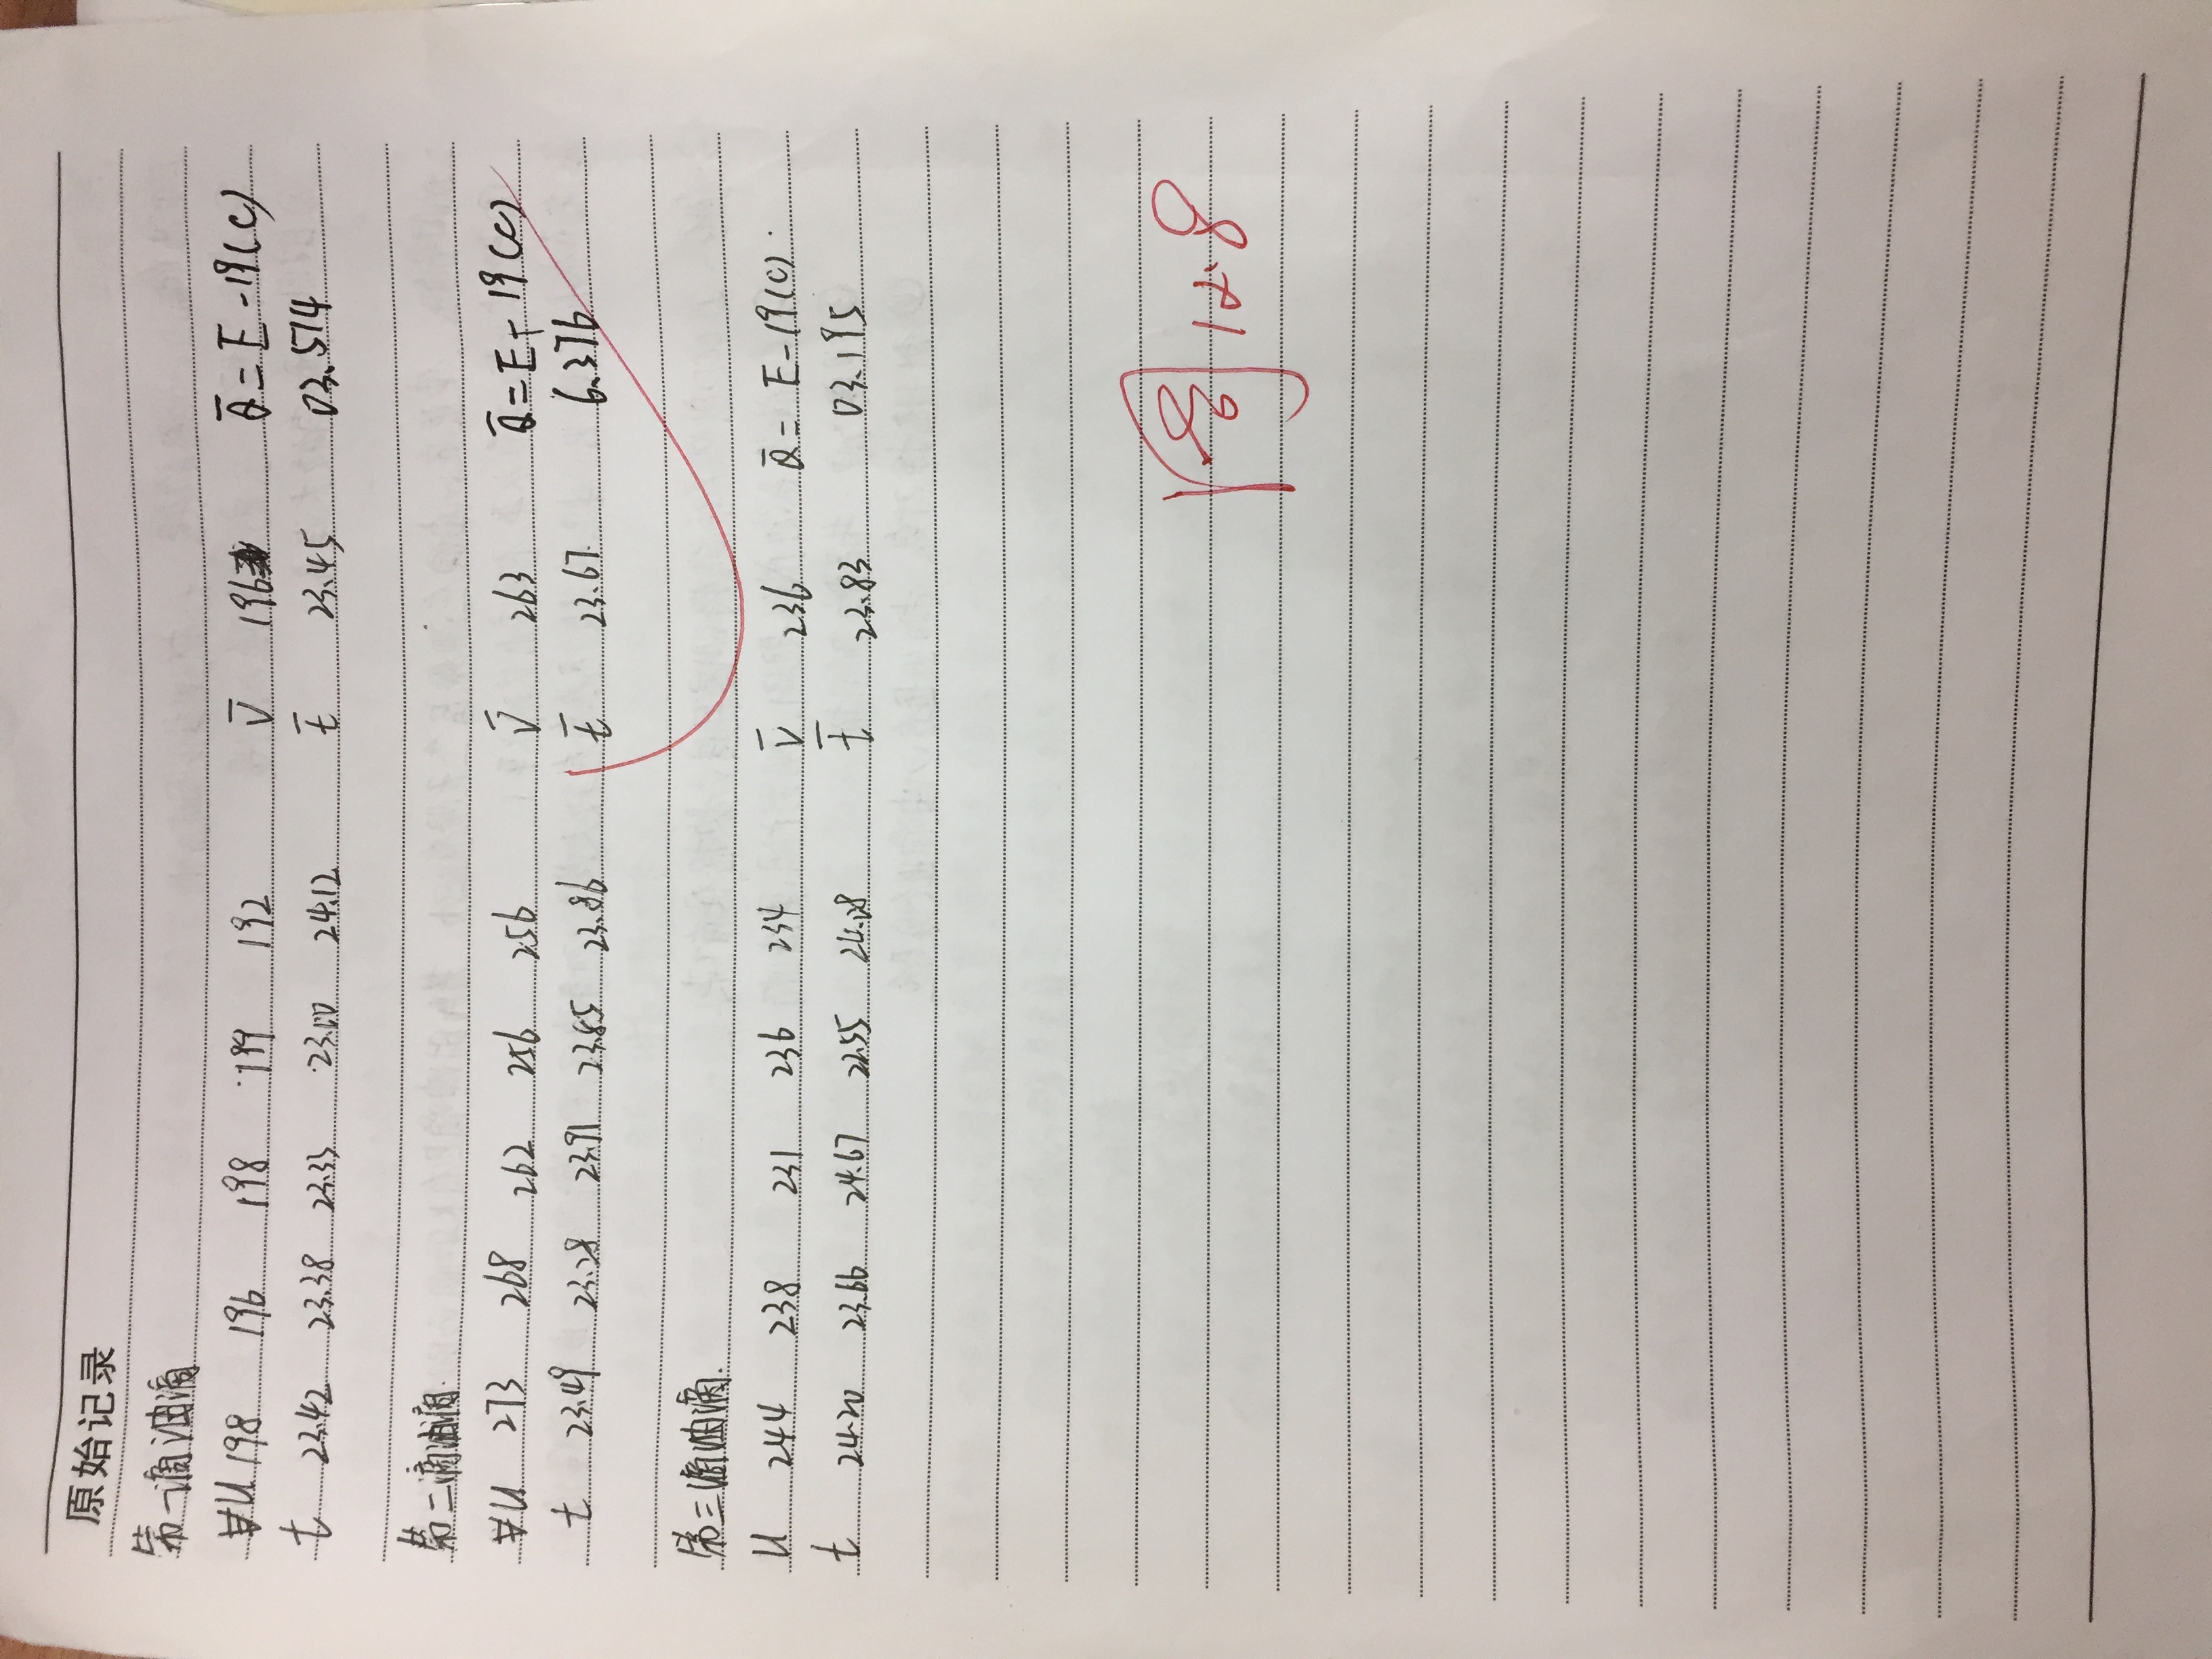 原始记录
第一滴油滴
U 198 196 198 199 192 V̄ 196 Q̄=E-19(C)
t 23.42 23.38 23.33 23.00 24.12 t̄ 23.45 03.514
第二滴油滴
U 273 268 262 256 256 V̄ 263 Q̄=E-19(C)
t 23.49 23.28 23.91 23.85 23.86 t̄ 23.67 6.376
第三滴油滴
U 244 238 231 236 234 V̄ 236 Q̄=E-19(C)
t 24.20 23.66 24.67 22.55 24.08 t̄ 23.83 03.195
12.8